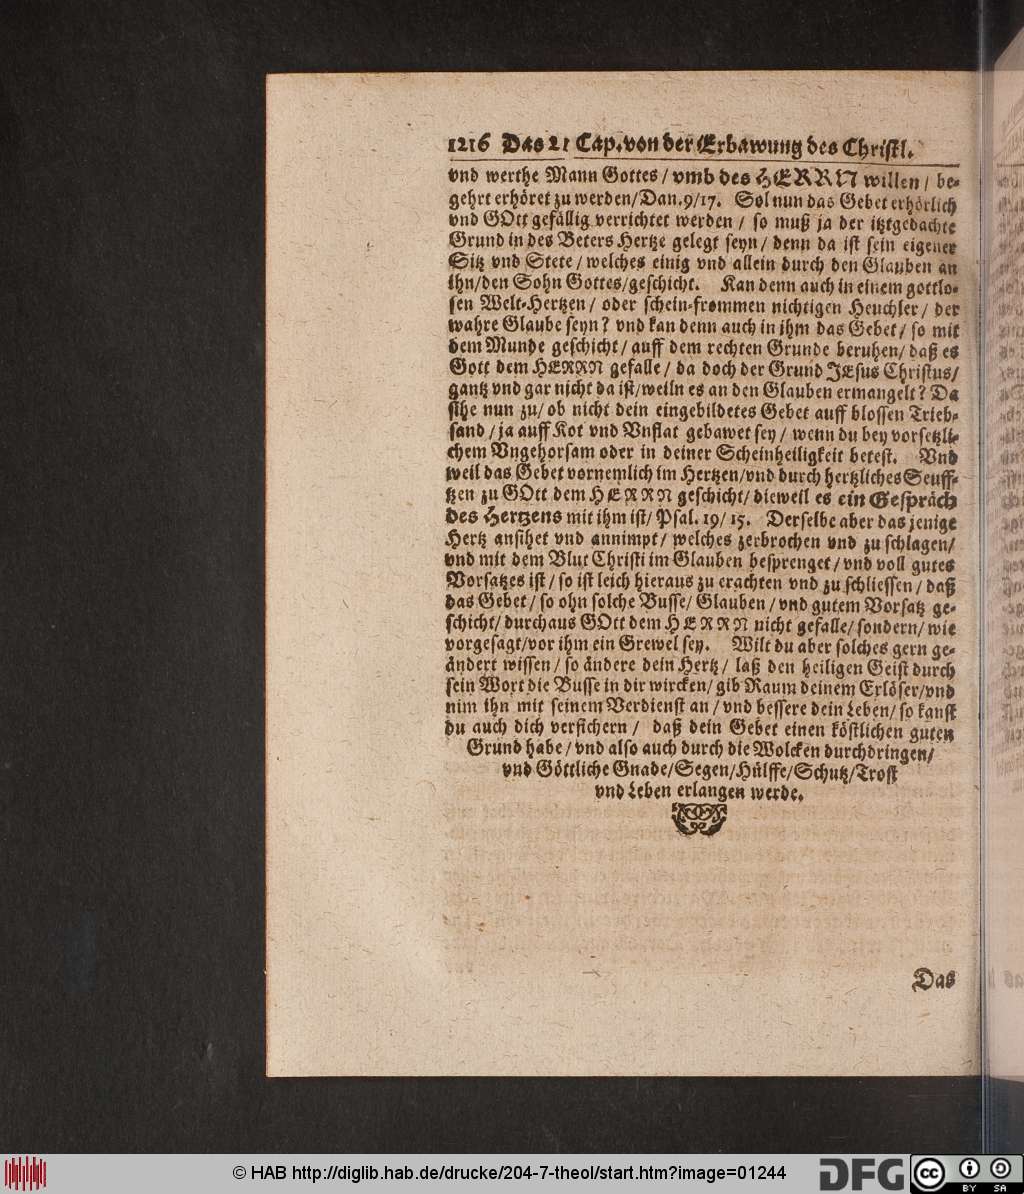 1216 Das 21 Cap. von der Erbawung des Christl.
vnd werthe Mann Gottes / vmb des HERRN willen / be-
gehrt erhöret zu werden/Dan. 9/17. Sol nun das Gebet erhörlich
vnd GOtt gefällig verrichtet werden / so muß ja der itztgedachte
Grund in des Beters Hertze gelegt seyn / denn da ist sein eigener
Sitz vnd Stete / welches einig vnd allein durch den Glauben an
ihn/den Sohn Gottes/geschicht. Kan denn auch in einem gottlo-
sen Welt-Hertzen / oder schein-frommen nichtigen Heuchler / der
wahre Glaube seyn? vnd kan denn auch in ihm das Gebet / so mit
dem Munde geschicht / auff dem rechten Grunde beruhen / daß es
Gott dem HERRN gefalle / da doch der Grund JEsus Christus /
gantz vnd gar nicht da ist / weiln es an den Glauben ermangelt? Da
sihe nun zu / ob nicht dein eingebildetes Gebet auff blossen Trieb-
sand / ja auff Kot vnd Vnflat gebawet sey / wenn du bey vorsetzli-
chem Vngehorsam oder in deiner Scheinheiligkeit betest. Vnd
weil das Gebet vornemlich im Hertzen/vnd durch hertzliches Seuff-
tzen zu GOtt dem HERRN geschicht / dieweil es ein Gespräch
des Hertzens mit ihm ist / Psal. 19 / 15. Derselbe aber das jenige
Hertz ansihet vnd annimpt / welches zerbrochen vnd zu schlagen /
vnd mit dem Blut Christi im Glauben besprenget / vnd voll gutes
Vorsatzes ist / so ist leich hieraus zu erachten vnd zu schliessen / daß
das Gebet / so ohn solche Busse / Glauben / vnd gutem Vorsatz ge-
schicht / durchaus GOtt dem HERRN nicht gefalle / sondern / wie
vorgesagt/vor ihm ein Grewel sey. Wilt du aber solches gern ge-
ändert wissen / so ändere dein Hertz / laß den heiligen Geist durch
sein Wort die Busse in dir wircken / gib Raum deinem Erlöser/vnd
nim ihn mit seinem Verdienst an / vnd bessere dein Leben / so kanst
du auch dich versichern / daß dein Gebet einen köstlichen guten
Grund habe / vnd also auch durch die Wolcken durchdringen /
vnd Göttliche Gnade/Segen/Hülffe/Schutz/Trost
vnd Leben erlangen werde.
Das
© HAB http://diglib.hab.de/drucke/204-7-theol/start.htm?image=01244
DFG
cc BY SA